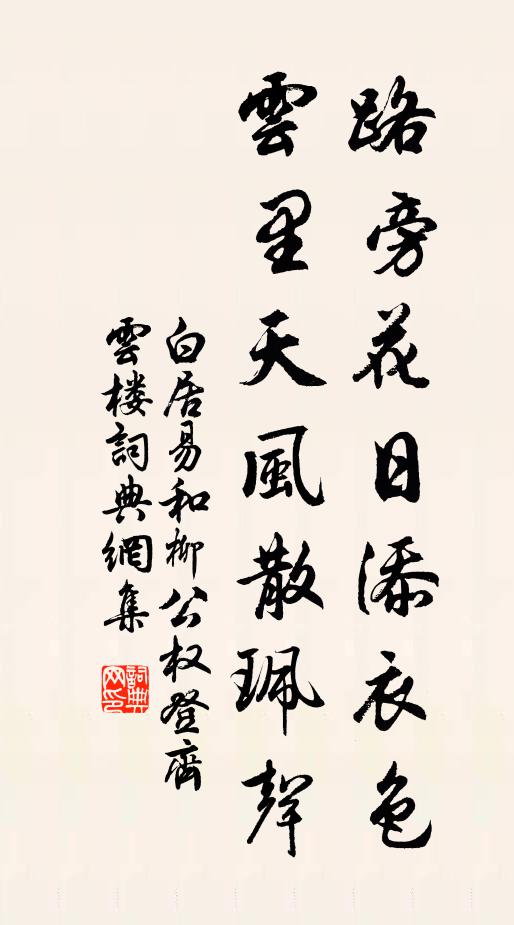 路旁花日添衣色
雲里天風散珮聲
白居易和柳公权登齊
雲楼詞典網集
詞典網印